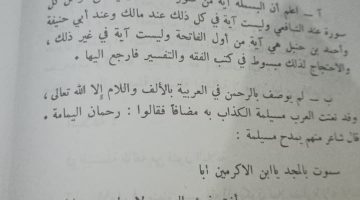 أ – اعلم أن البسملة آية من
سورة عند الشافعي وليست آية في كل ذلك عند مالك وعند أبي حنيفة
وأحمد بن حنبل هي آية من أول الفاتحة وليست آية في غير ذلك ،
والاحتجاج لذلك مبسوط في كتب الفقه والتفسير فارجع اليها .
ب – لم يوصف بالرحمن في العربية بالألف واللام إلا الله تعالى ،
وقد نعتت العرب مسيلمة الكذاب به مضافاً فقالوا : رحمان اليمامة .
قال شاعر منهم يمدح مسيلمة :
سموت بالمجد ياابن الاكرمين أبا